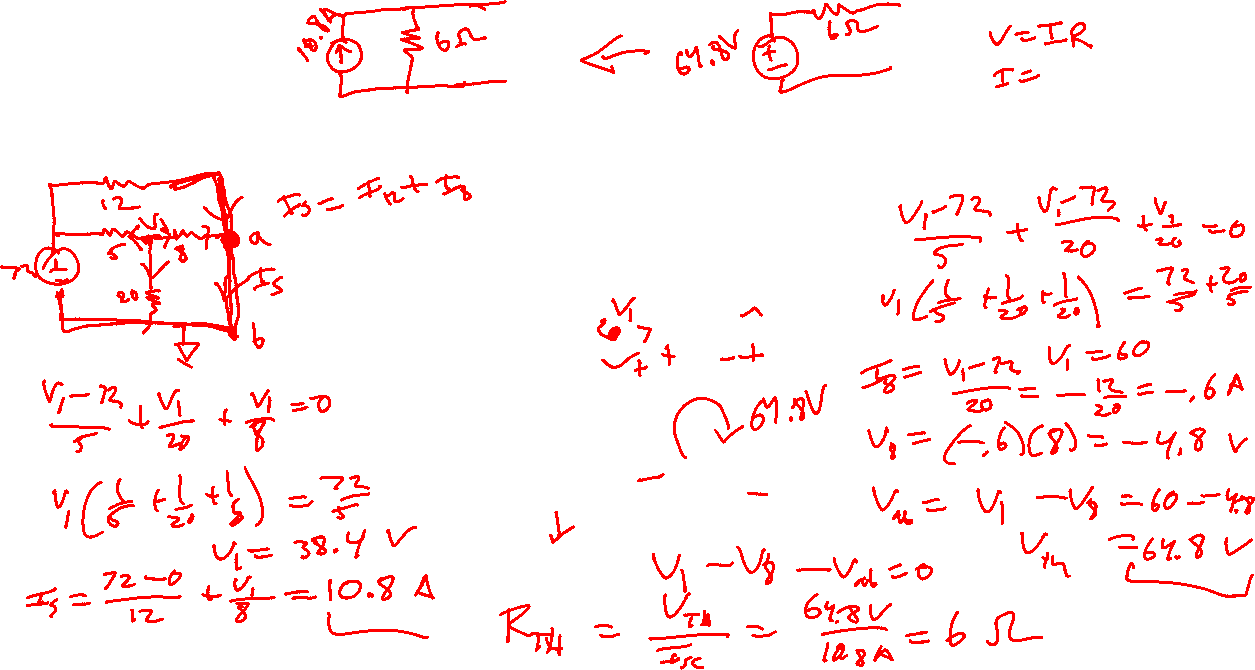 10.8A
6Ω
64.8V
6Ω
V=IR
I=
12
5
V₁
8
a
20
Is
b
Is = I12 + I8
(V₁-72)/5 + V₁/20 + V₁/8 = 0
V₁(1/5 + 1/20 + 1/8) = 72/5
V₁ = 38.4 V
Is = (72-0)/12 + V₁/8 = 10.8 A
V₁
+ - +
64.8V
- -
V₁ - V8 - Vab = 0
RTH = VTH/Isc = 64.8V/10.8A = 6 Ω
(V₁-72)/5 + (V₁-72)/20 + V₁/20 = 0
V₁(1/5 + 1/20 + 1/20) = 72/5 + 20/5
V₁ = 60
I8 = (V₁-72)/20 = -12/20 = -.6 A
V8 = (-.6)(8) = -4.8 V
Vab = V₁ - V8 = 60 - -4.8
VTH = 64.8 V